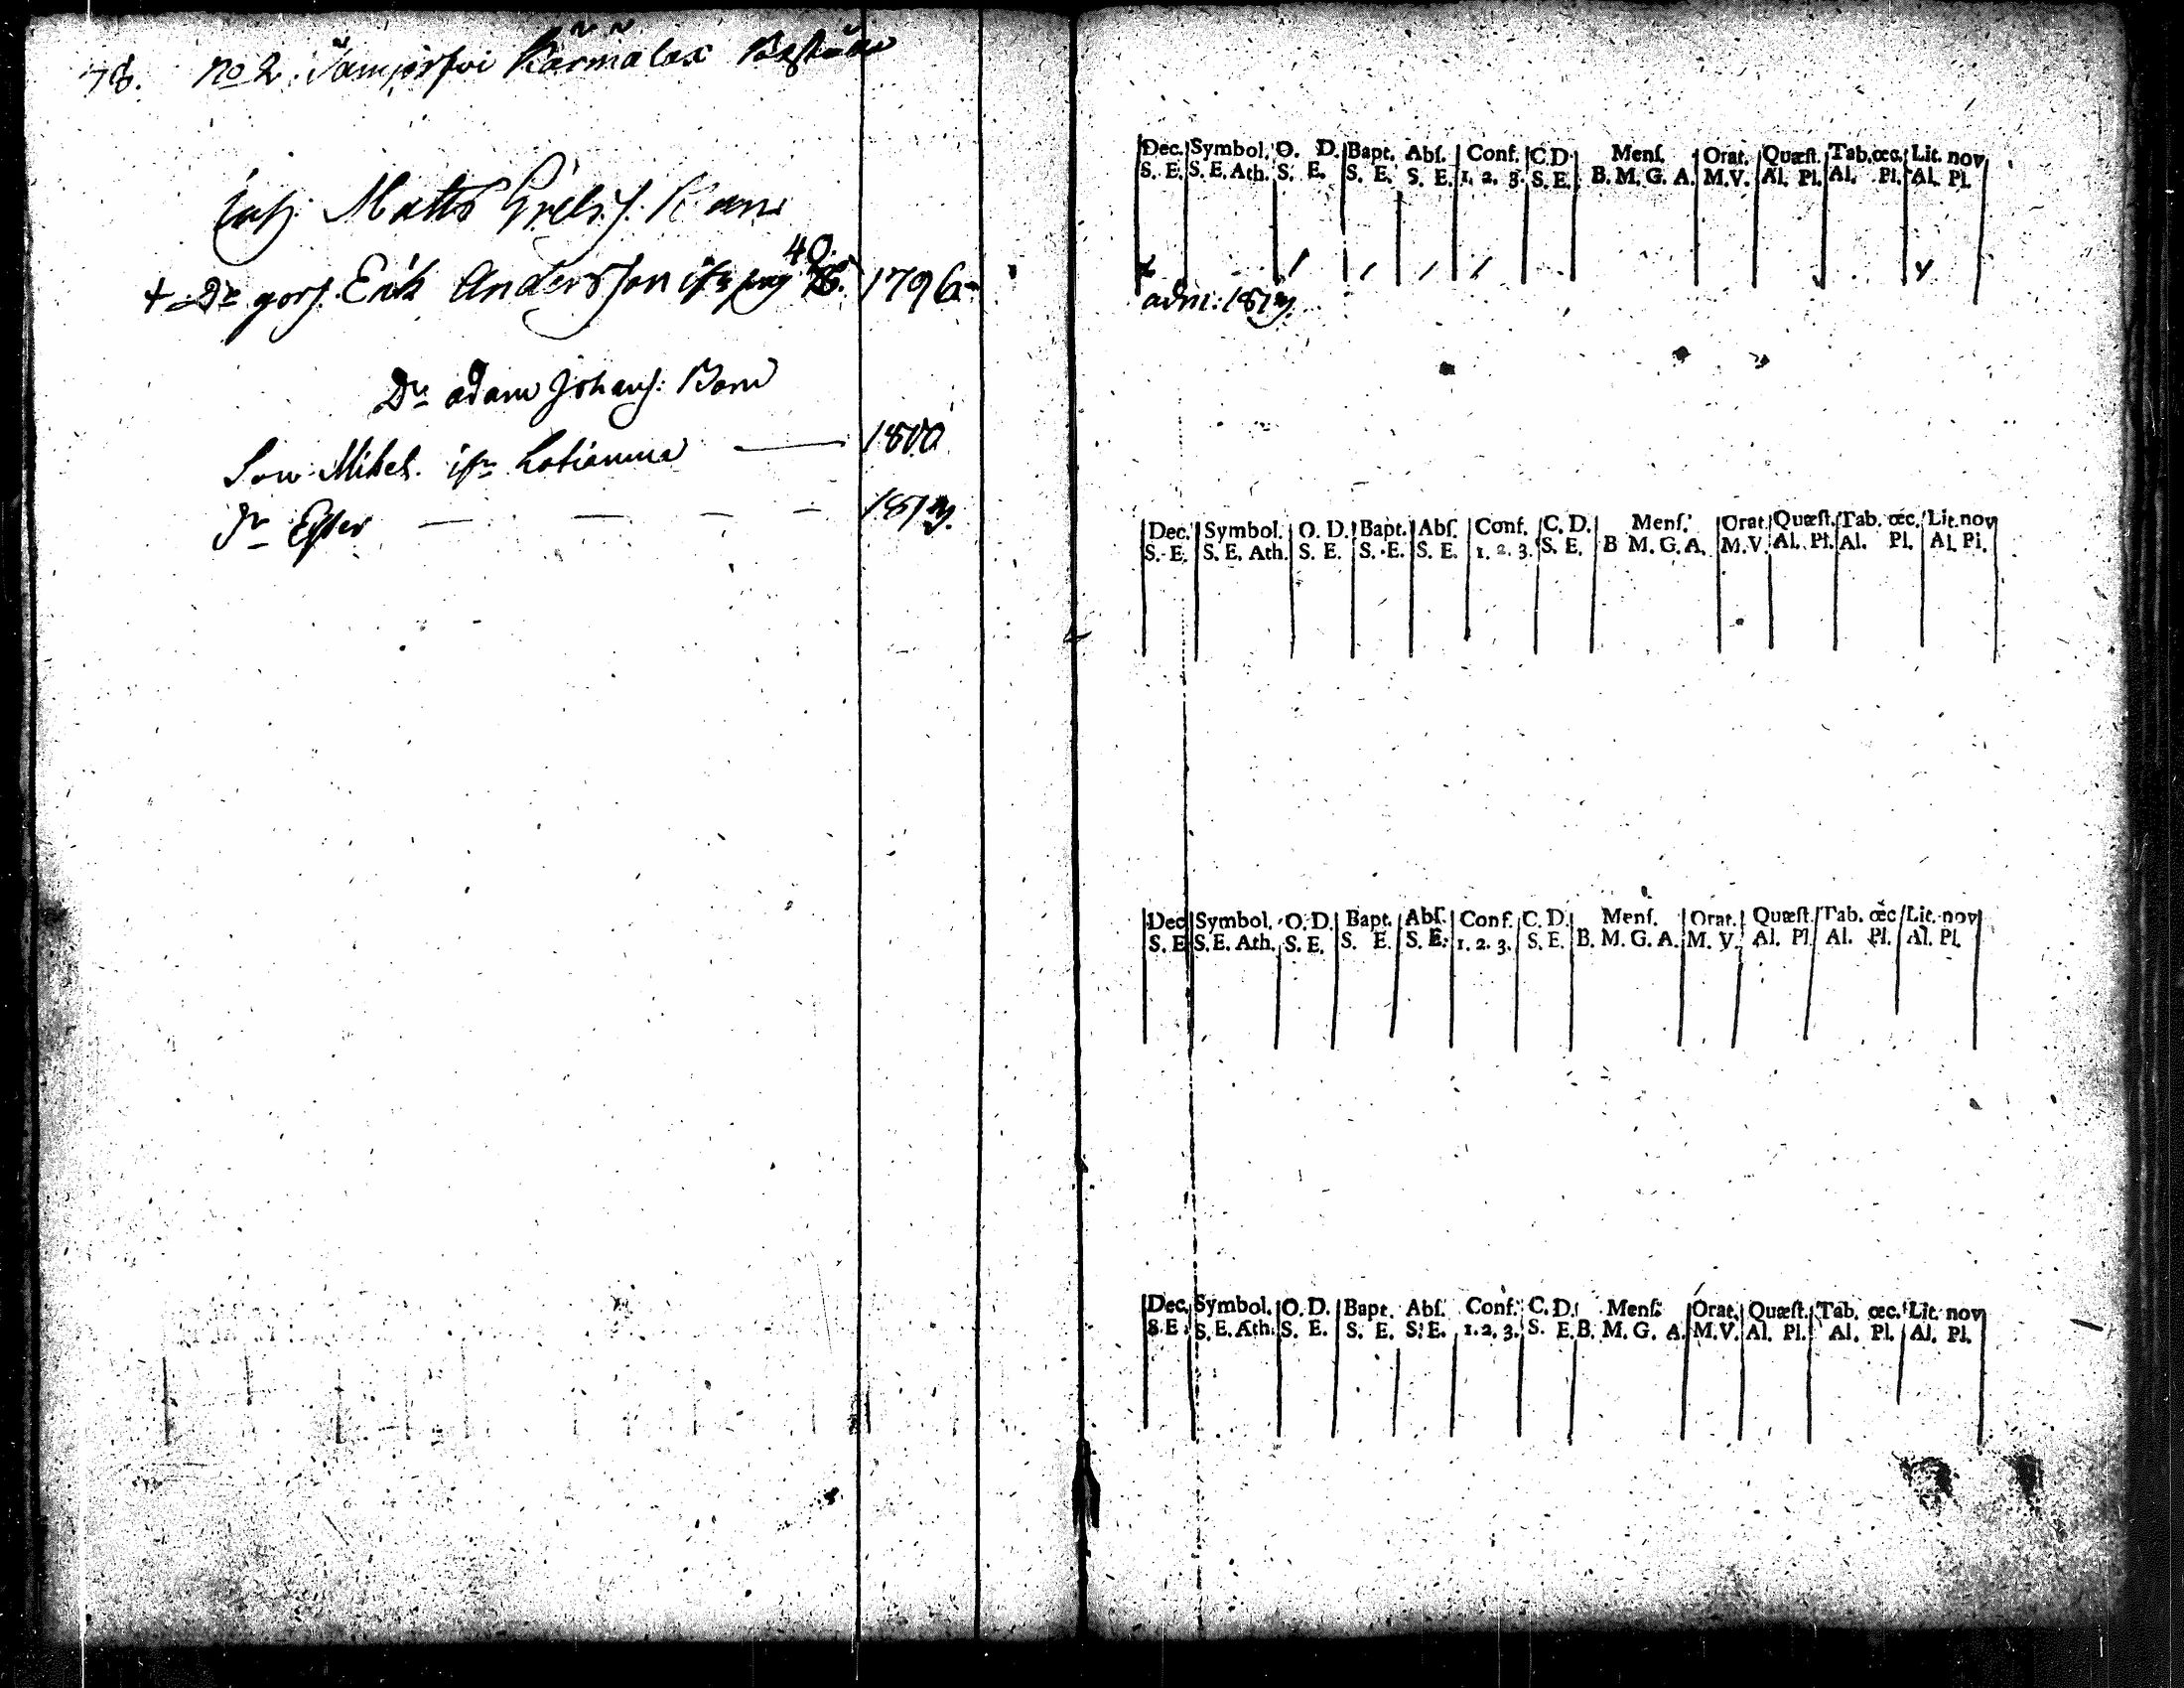 78. No 2. Jämijärfvi Kärmälax
Inh: Matts Grels. s.
+ Dr gors. Erik Andersson 40 1796
Dr Adam Johans:
Son Mikel 1800
Dr Ester — — — — 181
Dec. Symbol. O. D. Bapt. Abſ. Conf. C.D. Menſ. Orat. Quæſt. Tab. œc. Lit. nov
S. E. S. E. Ath. S. E. S. E. S. E. 1. 2. 3. S. E. B. M. G. A. M.V. Al. Pl. Al. Pl. Al. Pl.
adm: 181
Dec. Symbol. O. D. Bapt. Abſ. Conf. C. D. Menſ. Orat. Quæſt. Tab. œc. Lit. nov
S. E. S. E. Ath. S. E. S. E. S. E. 1. 2. 3. S. E. B M. G. A. M. V. Al. Pl. Al. Pl. Al. Pl.
Dec Symbol. O. D. Bapt. Abſ. Conf. C. D. Menſ. Orat. Quæſt. Tab. œc Lit. nov
S. E S. E. Ath. S. E. S. E. S. E. 1. 2. 3. S. E. B. M. G. A. M. V. Al. Pl. Al. Pl. Al. Pl.
Dec. Symbol. O. D. Bapt. Abſ. Conf. C. D. Menſ. Orat. Quæſt. Tab. œc. Lit. nov
S. E. S. E. Ath. S. E. S. E. S. E. 1. 2. 3. S. E. B. M. G. A. M. V. Al. Pl. Al. Pl. Al. Pl.